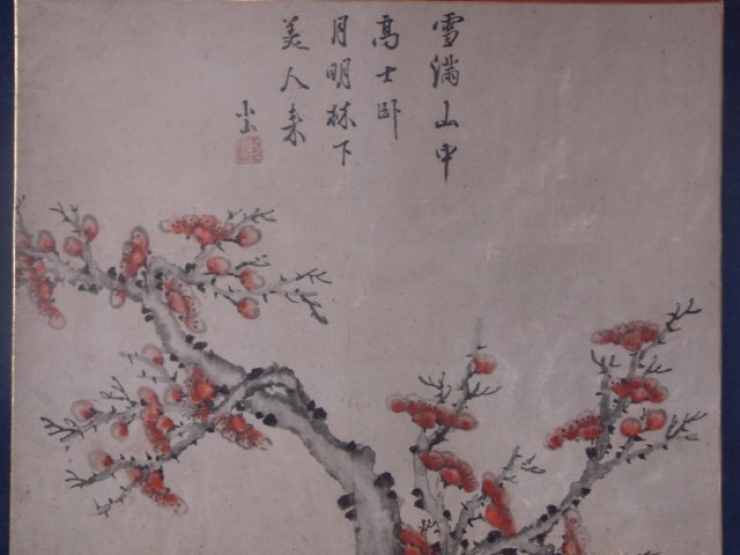 雪滿山中
高士卧
月明林下
美人来
小山